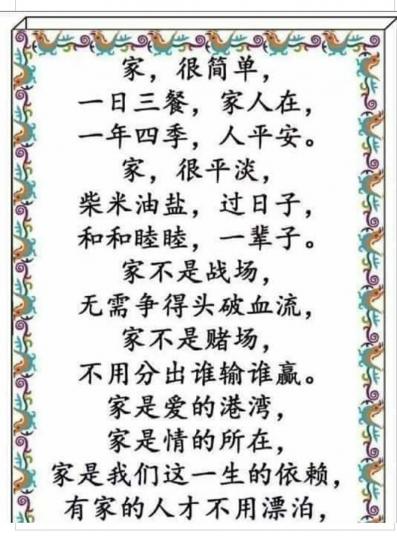 家，很简单，
一日三餐，家人在，
一年四季，人平安。
家，很平淡，
柴米油盐，过日子，
和和睦睦，一辈子。
家不是战场，
无需争得头破血流，
家不是赌场，
不用分出谁输谁赢。
家是爱的港湾，
家是情的所在，
家是我们这一生的依赖，
有家的人才不用漂泊，